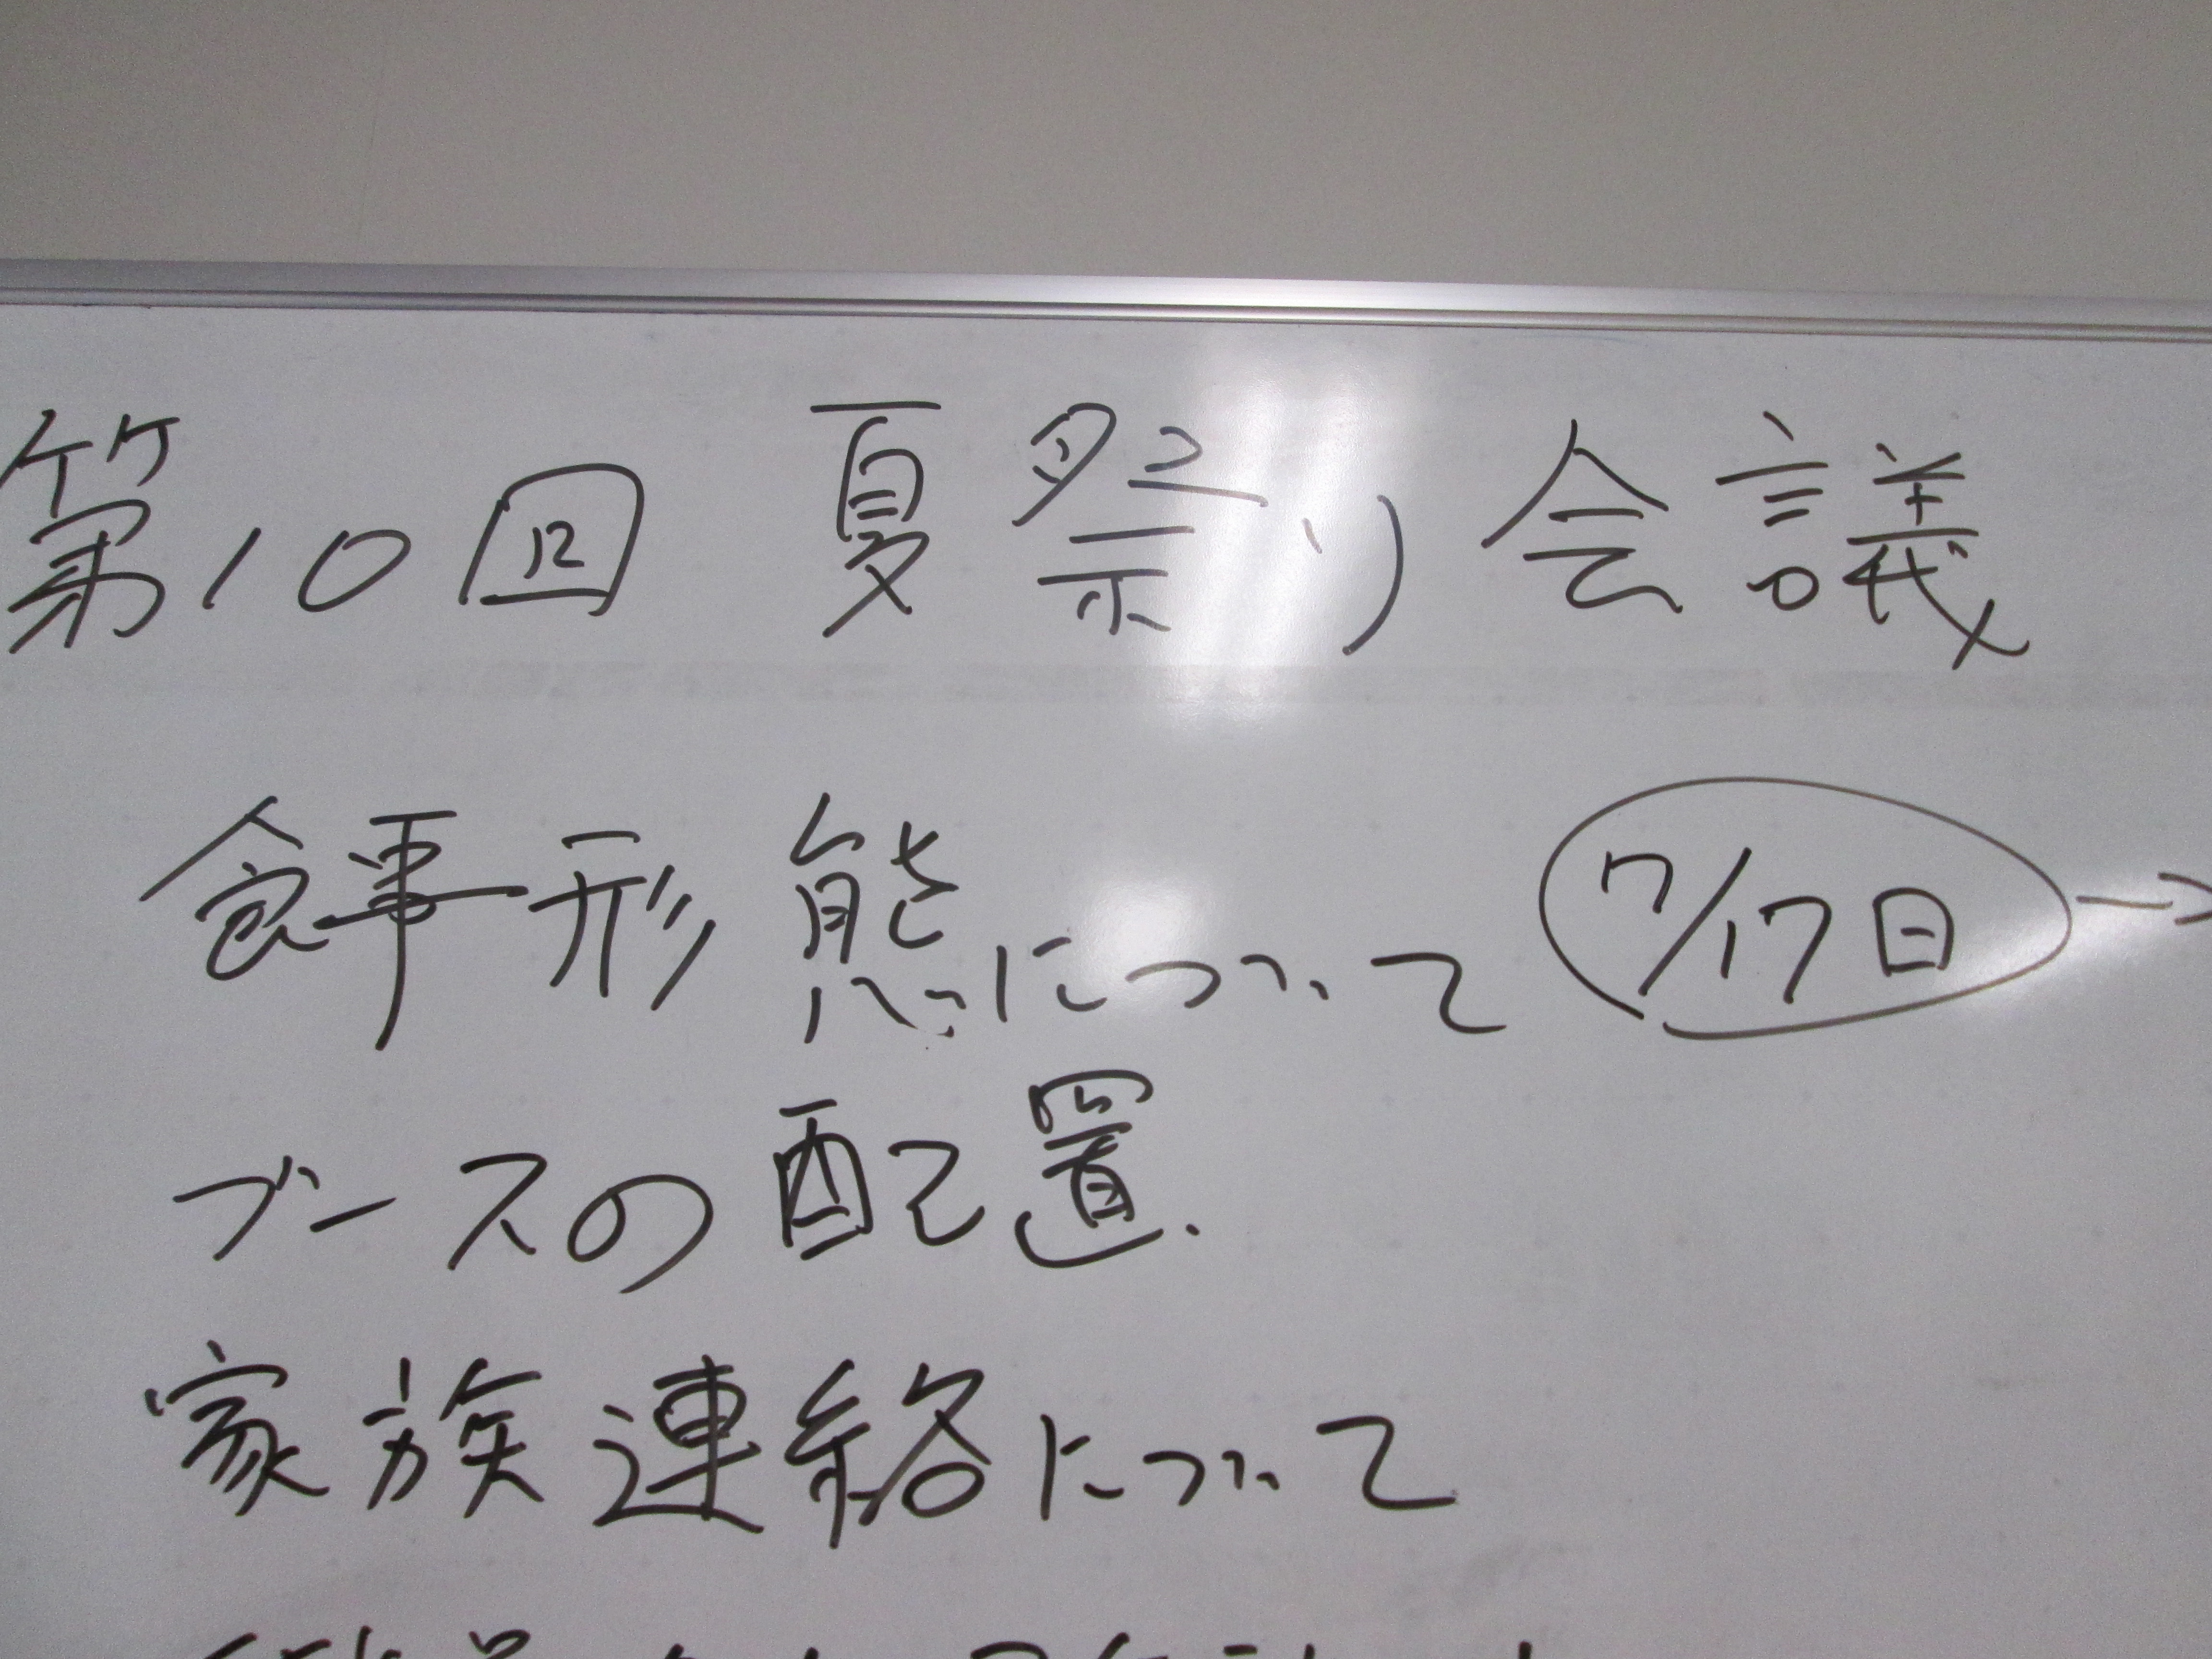 第10回 夏祭り会議
食事形態について 7/17日 →
ブースの配置.
家族連絡について